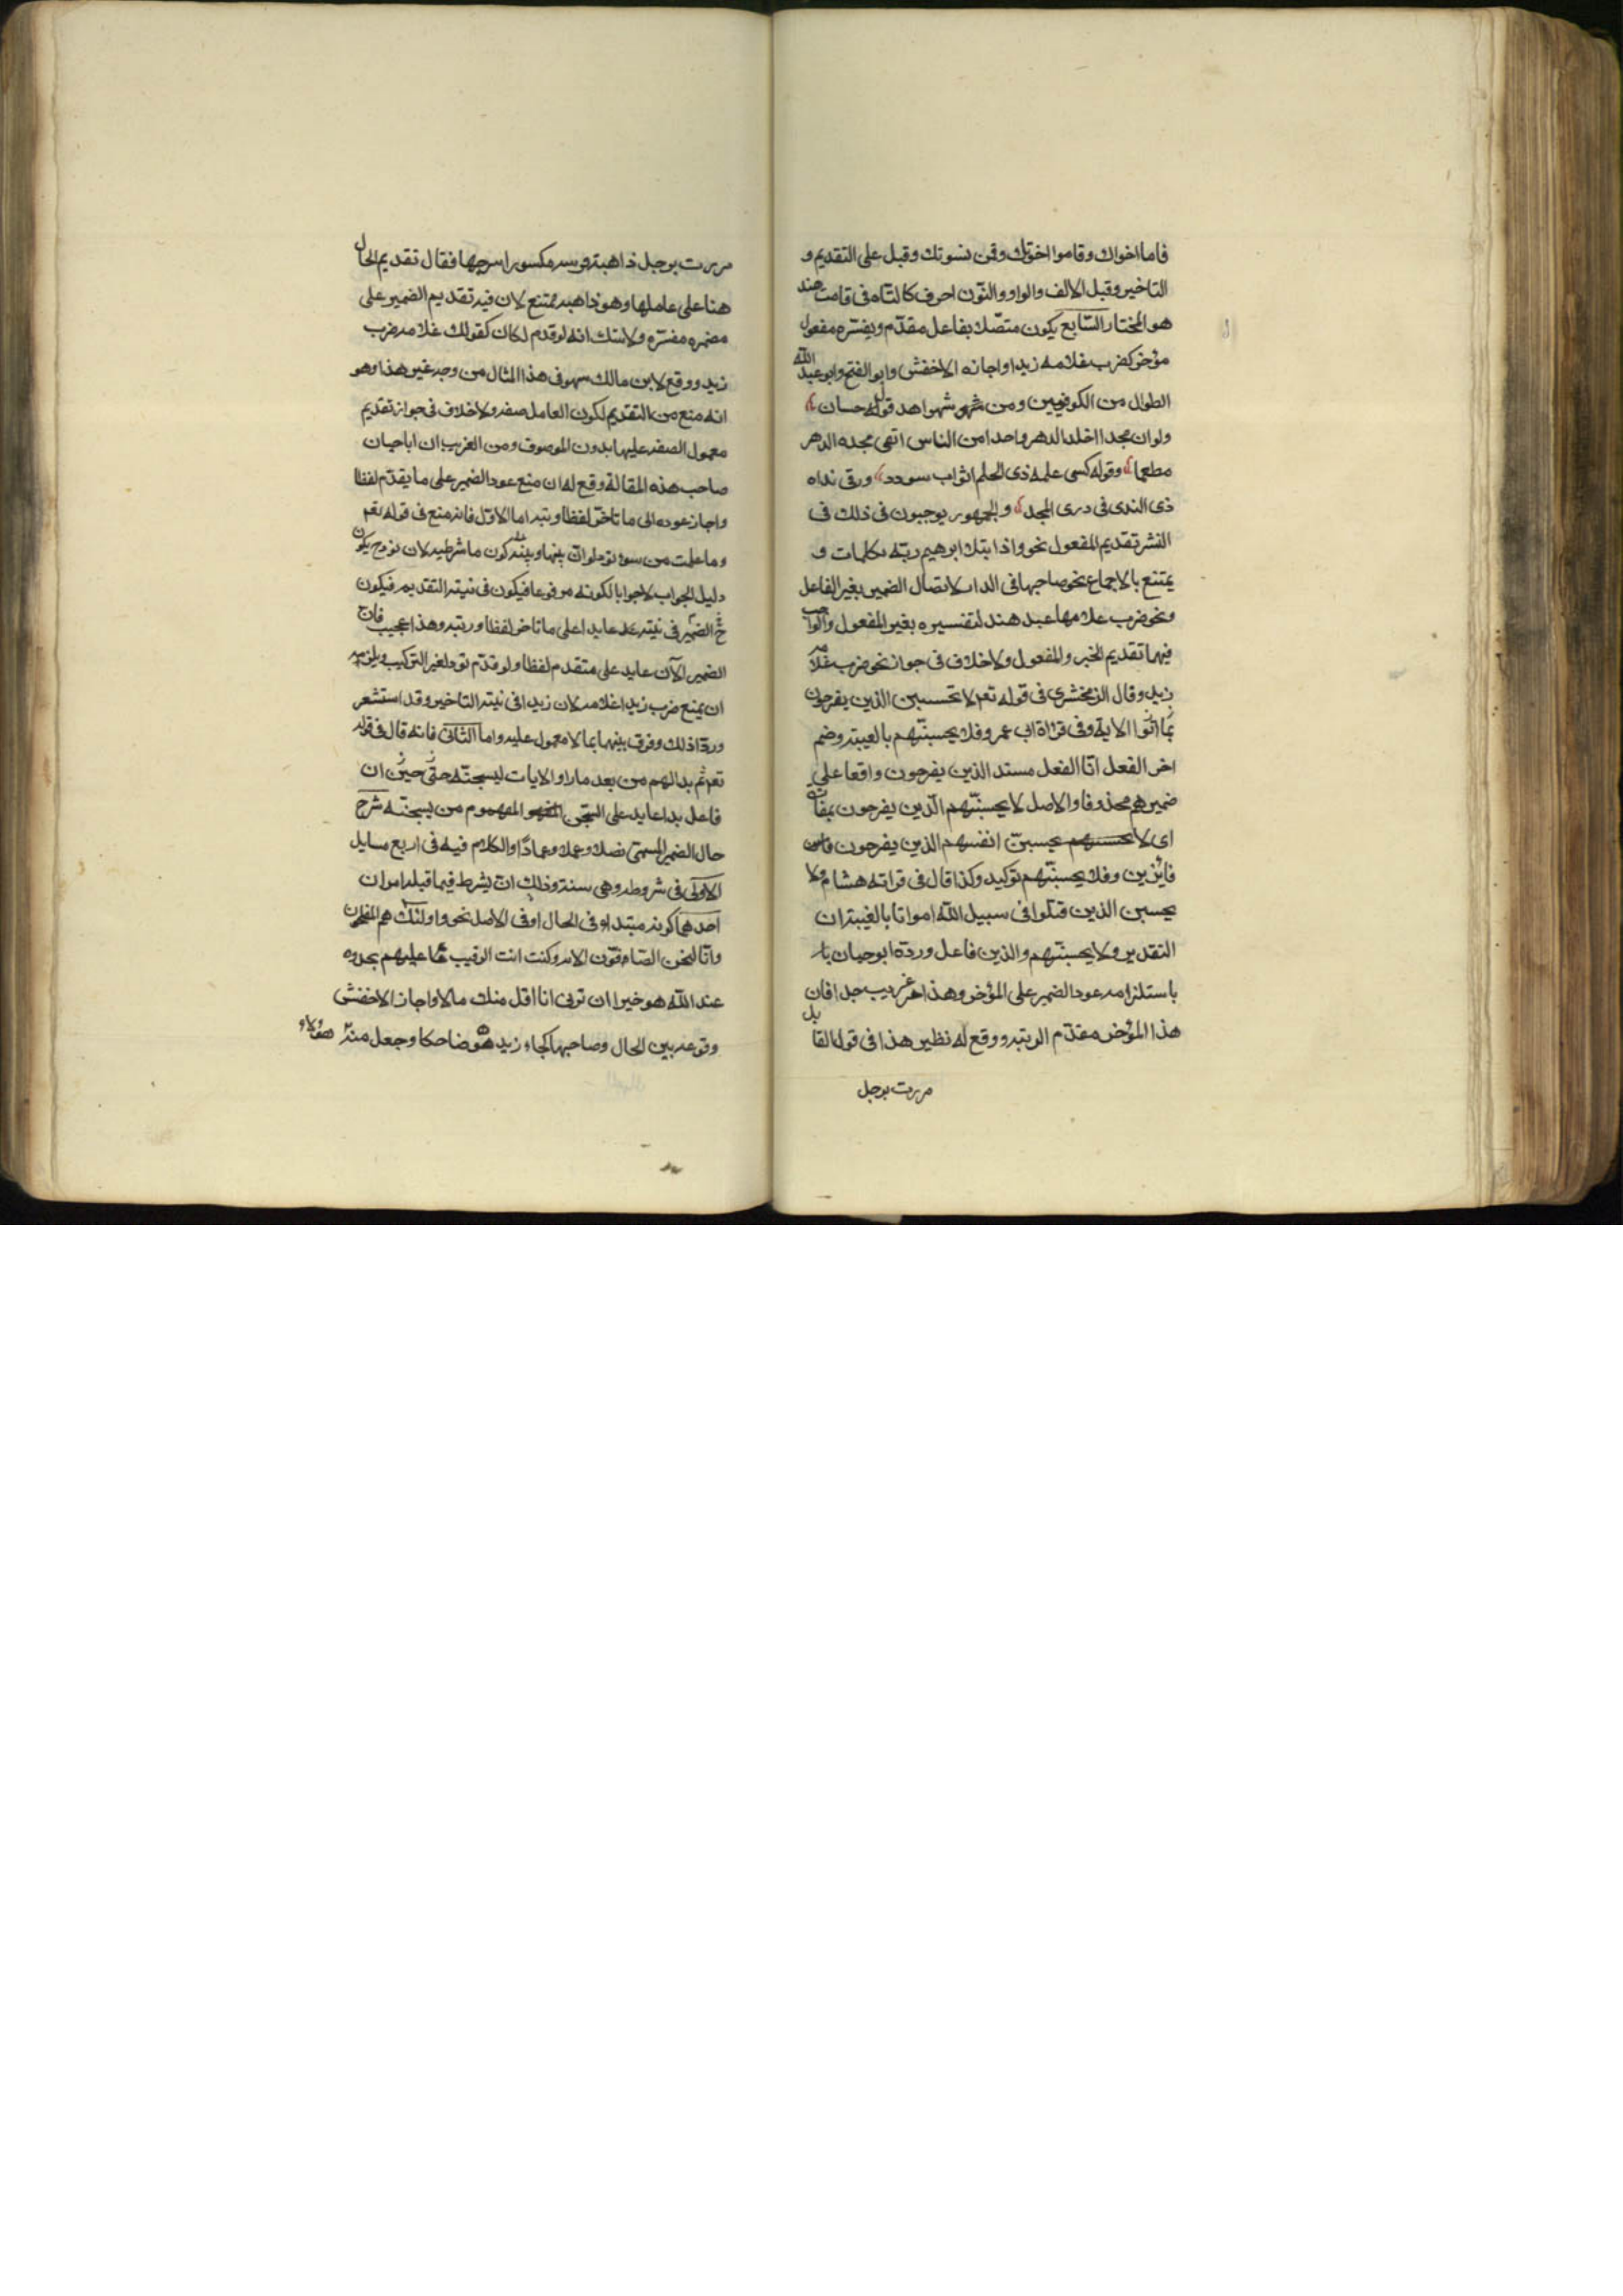 قاما اخواك وقاموا اخوتك وقمن نسوتك وقيل على التقديم و
التاخير وقيل الالف والواو والنون احرف كالتاء فى قامت هند
هو المختار السّابع يكون متصّلا بفاعل مقدّم ويفسّره مفعول
مؤخر كضرب غلامه زيدا واجازه الاخفش وابو الفتح وابو عبد الله
الطوال من الكوفيين ومن شواهد قول حسان
ولو ان مجدا اخلد الدهر واحدا من الناس ابقى مجده الدهر
مطعما وقوله كسى حلمه ذى الحلم اثواب سودد ورقى نداه
ذى الندى فى ذرى المجد والجمهور يوجبون فى ذلك فى
النثر تقديم المفعول نحو واذا ابتلى ابرهيم ربّه بكلمات و
يمتنع بالاجماع نحو صاحبها فى الدار لاتصال الضمير بغير الفاعل
ونحو ضرب غلامها عبد هند لتفسيره بغير المفعول والواجب
فيهما تقديم الخبر والمفعول ولاخلاف فى جواز نحو ضرب غلامه
زيد وقال الزمخشرى فى قوله تعم لا تحسبن الذين يفرحون
بما اتوا الاية وفى قراة ابى عمرو فلا يحسبنّهم بالغيبة وضم
اخر الفعل انّ الفعل مسند الذين يفرحون واقعا على
ضميرهم محذوفا والاصل لا يحسبنّهم الّذين يفرحون بمفازة
اى لا يحسبنّ انفسهم الذين يفرحون
فايزين وفلا يحسبنّهم توكيد وكذا قال فى قراة هشام ولا
يحسبن الذين قتلوا فى سبيل الله امواتا بالغيبة ان
التقدير ولا يحسبنّهم والذين فاعل وردّه ابو حيان
باستلزامه عود الضمير على المؤخر وهذا غريب جدا فان
هذا المؤخر مقدّم الرتبة ووقع له نظير هذا فى قول القايل
مررت برجل
مررت برجل ذاهبة فرسه مكسورا سرجها فقال تقديم الحال
هنا على عاملها وهو ذاهبة ممتنع لان فيه تقديم الضمير على
مضمره مفسّره ولاشك انه لو قدم لكان كقولك غلامه ضرب
زيد ووقع لابن مالك سهو فى هذا المثال من وجه غير هذا وهو
انه منع من التقديم لكون العامل صفة ولاخلاف فى جواز تقديم
معمول الصفة عليها بدون الموصوف ومن الغريب ان ابا حيان
صاحب هذه المقالة وقع له ان منع عود الضمير على ما يقدّم لفظا
واجاز عوده الى ما تاخّر لفظا ورتبة اما الاوّل فانه منع فى قوله تعم
وما عملت من سوء تود لو انّ بينها وبينه كون ما شرطية لان تود ح يكون
دليل الجواب لاجوابا لكونه مرفوعا فيكون فى نيّة التقديم فيكون
ح الضمير فى بينه عايدا على ما تاخر لفظا ورتبة وهذا عجيب فان
الضمير الآن عايد على متقدم لفظا ولو قدّم تود لغير التركيب ويلزمه
ان يمنع ضرب زيدا غلامه لان زيدا فى نيّة التاخير وقد استشعر
ورود ذلك وفرق بينهما بما لا معول عليه واما الثانى فانه قال فى قوله
تعم ثم بدا لهم من بعد ما راوا الايات ليسجننّه حتّى حين ان
فاعل بدا عايد على السّجن المفهوم من ليسجننّه شرح
حال الضمير المسمّى فصلا وعمادا والكلام فيه فى اربع مسايل
الاولى فى شروطه وهى ستة وذلك انّه يشترط فيما قبله امران
احدهما كونه مبتدا فى الحال او فى الاصل نحو واولئك هم المفلحون
وانّا لنحن الصّافّون الاية وكنت انت الرقيب عليهم تجدوه
عند الله هو خيرا ان ترنى انا اقل منك مالا واجاز الاخفش
وقوعه بين الحال وصاحبها كجاء زيد هو ضاحكا وجعل منه هؤلاء